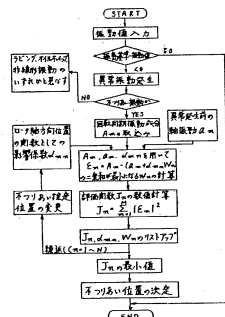 START
振動値入力
≧0
異常振動発生
<0
ラビング、オイルホイップ等
非線形振動の
いずれかと見なす
NO
不つりあい振動か
YES
回転同期振動成分
Am取り込み
異常発生前の
軸振動 am
ロータ軸方向位置
の関数としての
影響係数αmn
Am, am, αmnを用いて
の二乗和が最小になるWnの計算
評価関数Jnの数値計算
不つりあい推定
位置の変更
Jn, αmn, Wnのリストアップ
繰返(n=1〜N)
Jnの最小値
不つりあい位置の決定
END